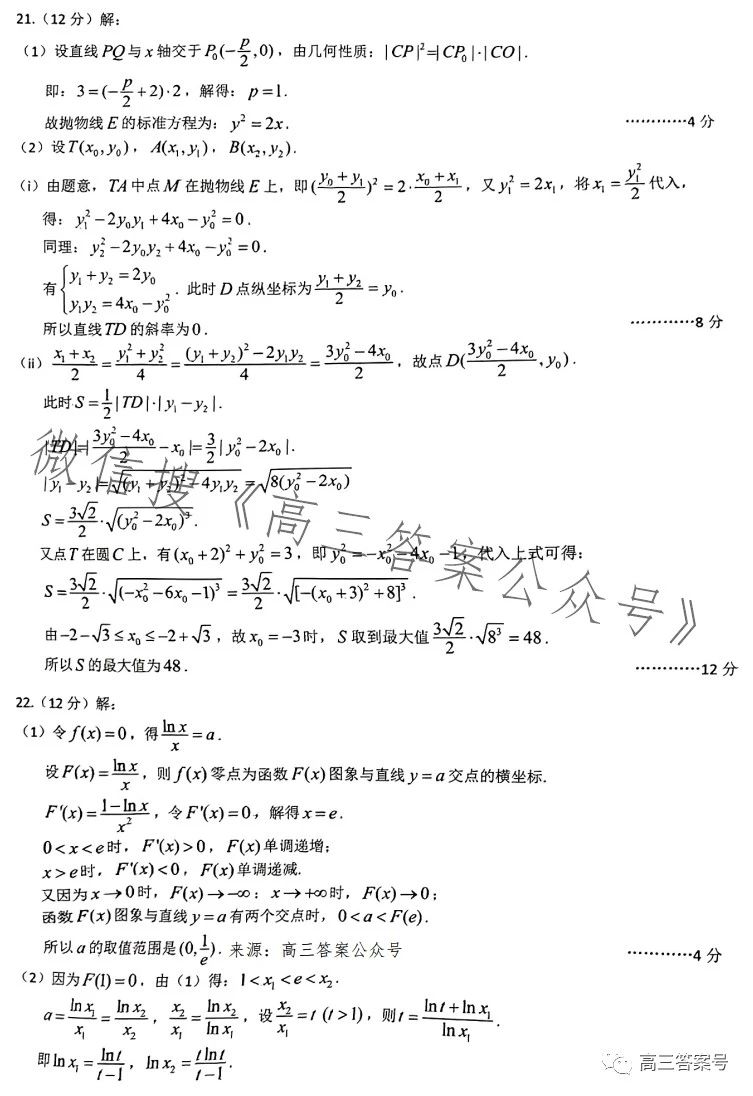 21.（12 分）解：
（1）设直线 PQ 与 x 轴交于 P₀(-p/2,0)，由几何性质：|CP|²=|CP₀|·|CO|.
即：3=(-p/2+2)·2，解得：p=1.
故抛物线 E 的标准方程为：y²=2x. …………4 分
（2）设 T(x₀,y₀)，A(x₁,y₁)，B(x₂,y₂).
（i）由题意，TA 中点 M 在抛物线 E 上，即((y₀+y₁)/2)²=2·(x₀+x₁)/2，又 y₁²=2x₁，将 x₁=y₁²/2 代入，
得：y₁²-2y₀y₁+4x₀-y₀²=0.
同理：y₂²-2y₀y₂+4x₀-y₀²=0.
有{y₁+y₂=2y₀
y₁y₂=4x₀-y₀². 此时 D 点纵坐标为(y₁+y₂)/2=y₀.
所以直线 TD 的斜率为 0. …………8 分
（ii）(x₁+x₂)/2=(y₁²+y₂²)/4=((y₁+y₂)²-2y₁y₂)/4=(3y₀²-4x₀)/2，故点 D((3y₀²-4x₀)/2,y₀).
此时 S=1/2|TD|·|y₁-y₂|.
|TD|=|(3y₀²-4x₀)/2-x₀|=3/2|y₀²-2x₀|.
|y₁-y₂|=√((y₁+y₂)²-4y₁y₂)=√(8(y₀²-2x₀))
S=3√2/2·√((y₀²-2x₀)³).
又点 T 在圆 C 上，有(x₀+2)²+y₀²=3，即 y₀²=-x₀²-4x₀-1，代入上式可得：
S=3√2/2·√((-x₀²-6x₀-1)³)=3√2/2·√([-(x₀+3)²+8]³).
由-2-√3≤x₀≤-2+√3，故 x₀=-3 时，S 取到最大值 3√2/2·√(8³)=48.
所以 S 的最大值为 48. …………12 分
微信搜《高三答案公众号》
22.（12 分）解：
（1）令 f(x)=0，得 lnx/x=a.
设 F(x)=lnx/x，则 f(x) 零点为函数 F(x) 图象与直线 y=a 交点的横坐标.
F'(x)=(1-lnx)/x²，令 F'(x)=0，解得 x=e.
0<x<e 时，F'(x)>0，F(x) 单调递增；
x>e 时，F'(x)<0，F(x) 单调递减.
又因为 x→0 时，F(x)→-∞；x→+∞ 时，F(x)→0；
函数 F(x) 图象与直线 y=a 有两个交点时，0<a<F(e).
所以 a 的取值范围是(0,1/e). 来源：高三答案公众号 …………4 分
（2）因为 F(1)=0，由（1）得：1<x₁<e<x₂.
a=lnx₁/x₁=lnx₂/x₂，x₂/x₁=lnx₂/lnx₁，设 x₂/x₁=t (t>1)，则 t=(lnt+lnx₁)/lnx₁.
即 lnx₁=lnt/(t-1)，lnx₂=tlnt/(t-1).
高三答案号